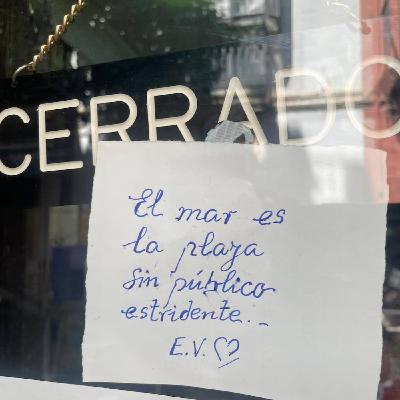 CERRADO
El mar es
la plaza
Sin público
estridente...
E.V.♡